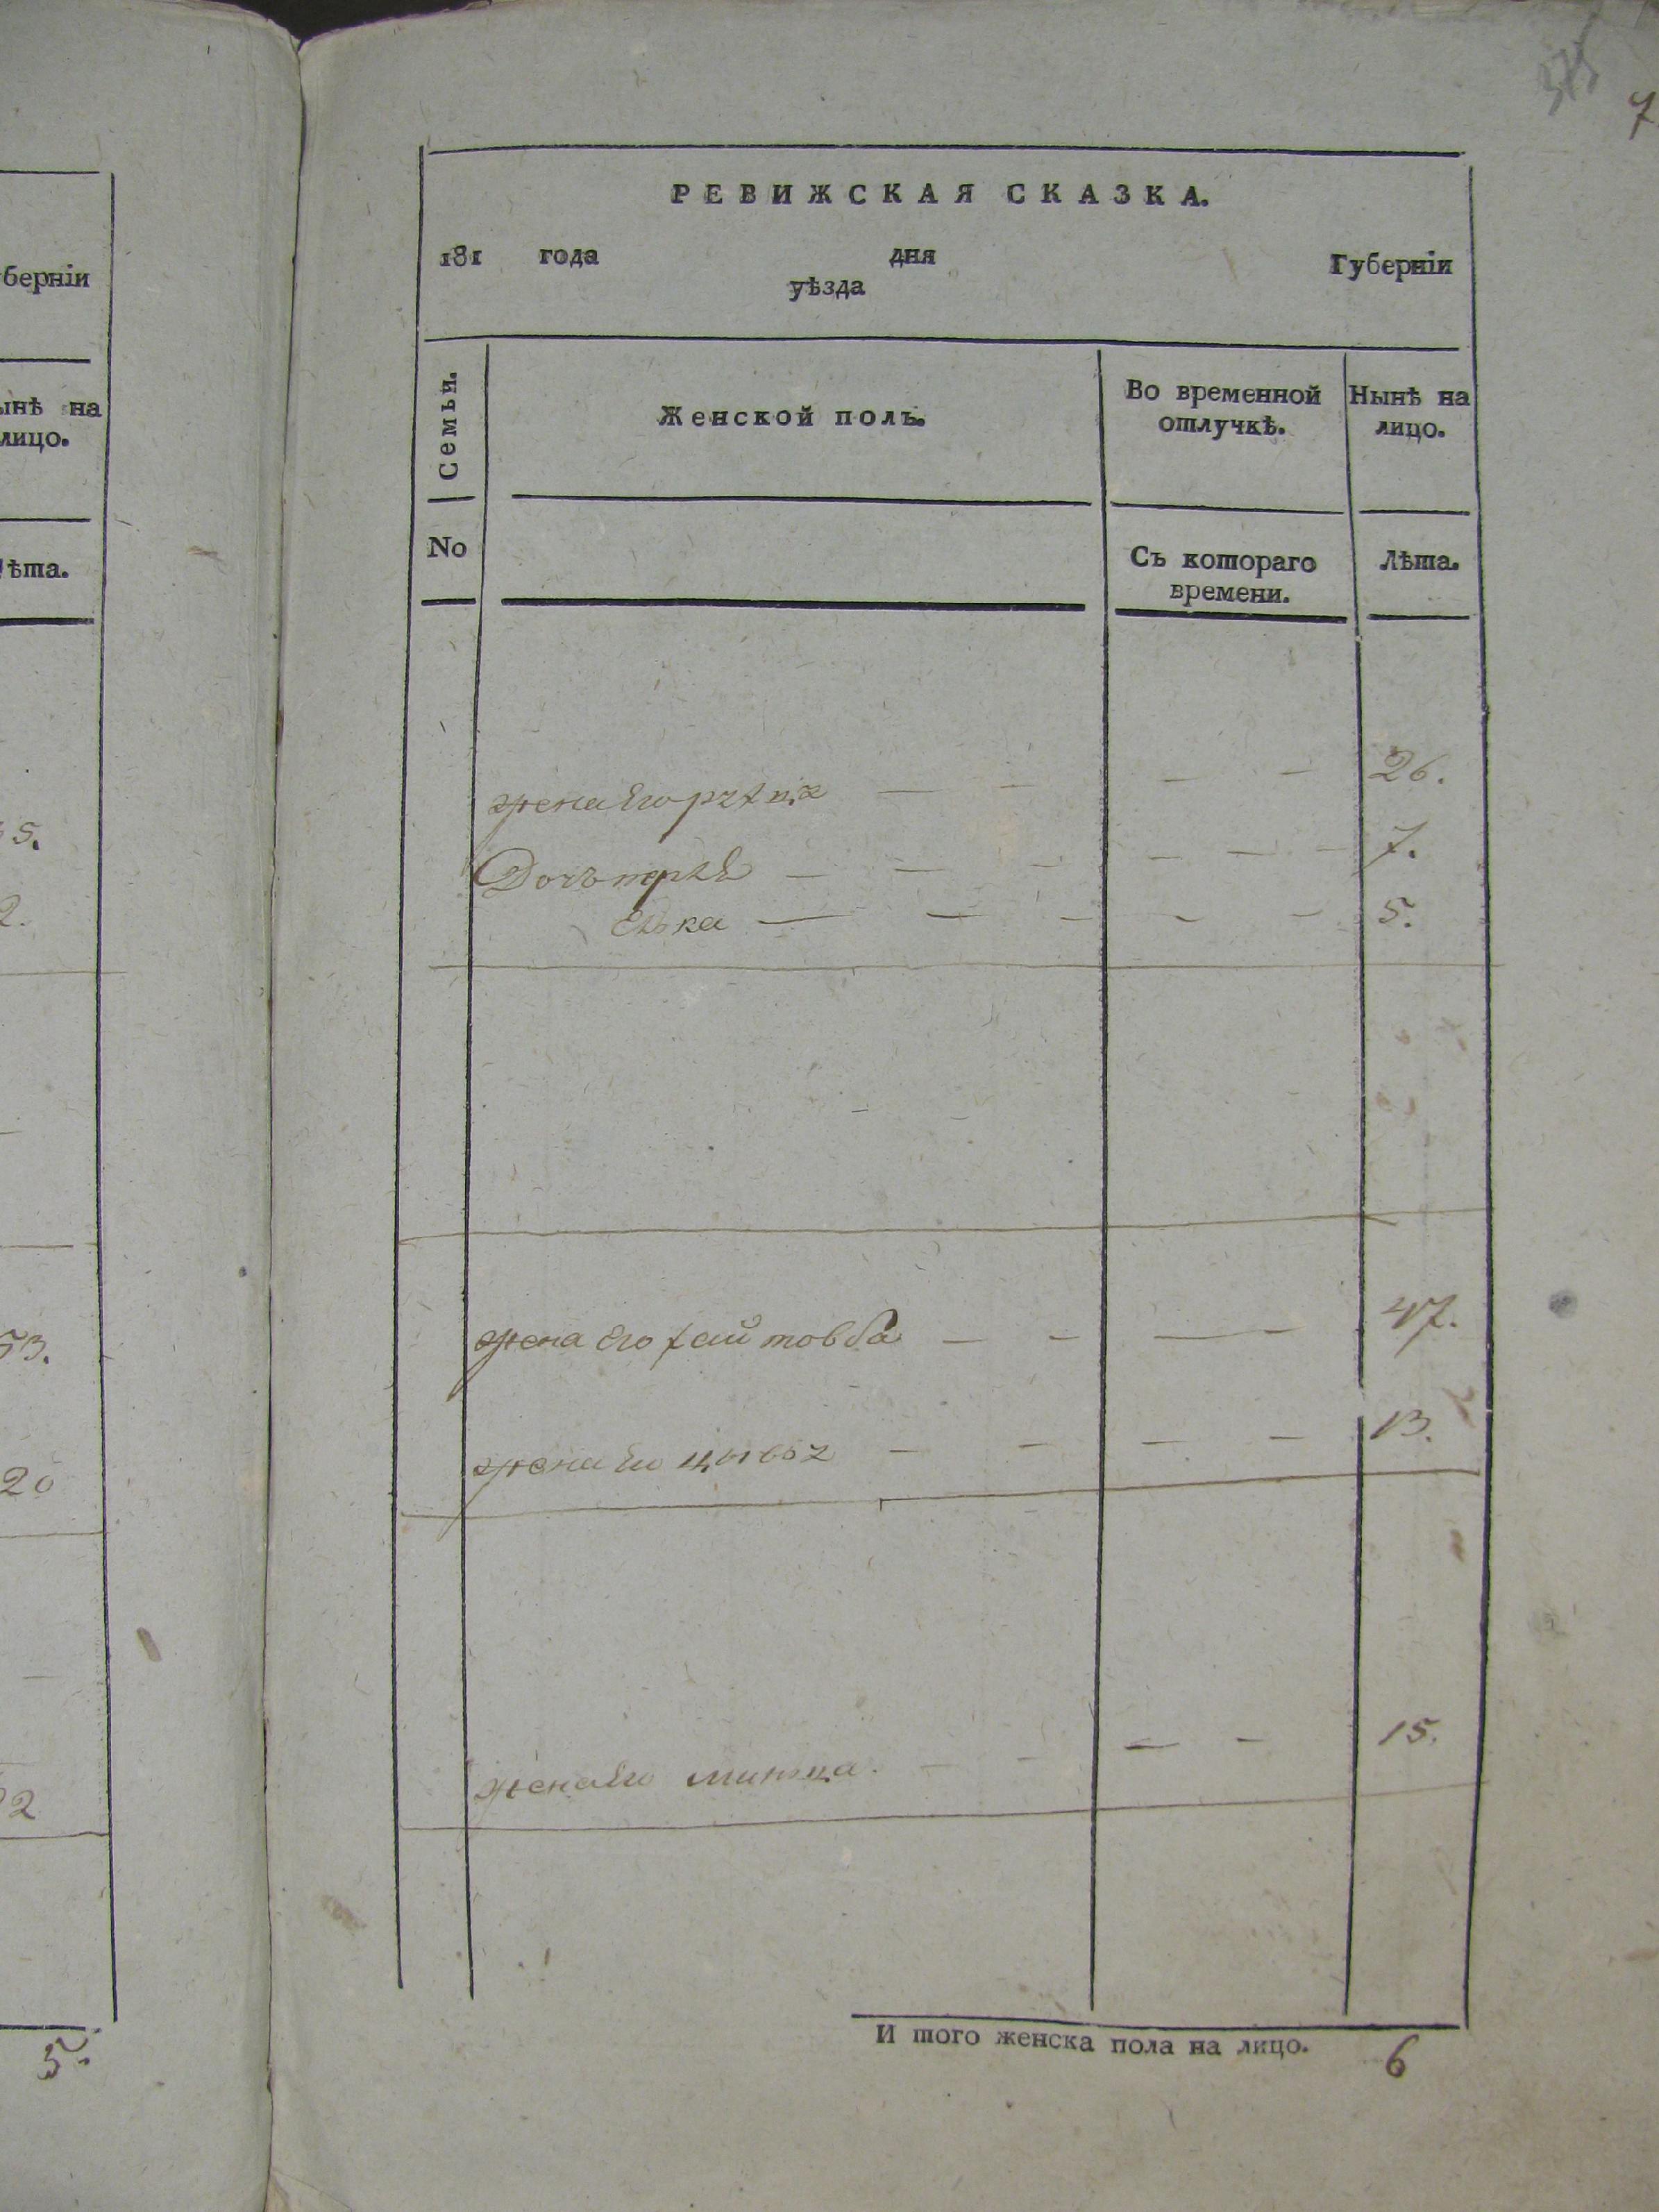 375
7
РЕВИЖСКАЯ СКАЗКА.
181 года дня Губерніи
уѣзда
берніи
Семьи.
Женской полъ.
Во временной отлучкѣ.
Нынѣ на лицо.
ынѣ на
лицо.
No
Съ котораго времени.
Лѣта.
ѣта.
жена Его — — — — 26.
5.
Дочь — — — — — — 7.
Ѣлька — — — — — 5.
2.
жена Его хай товба — — — — 47.
53.
жена Его цывоя — — — — 13.
20
жена Его минька. — — — — 15.
22
И того женска пола на лицо. 6
5.